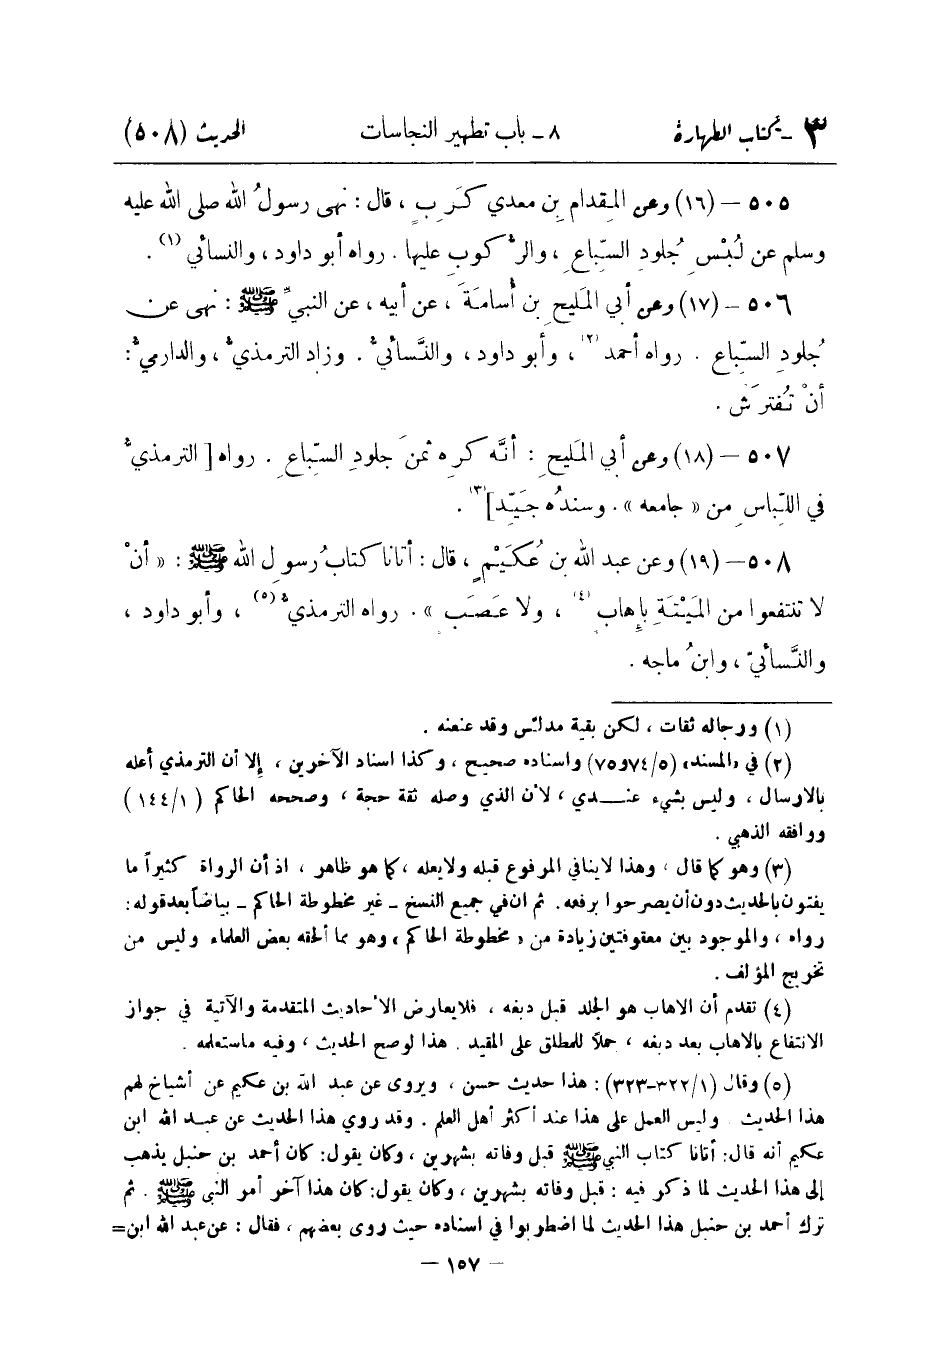 ٣ - كتاب الطهارة ٨ - باب تطهير النجاسات الحديث (٥٠٨)
٥٠٥ – (١٦) وعن المِقدام بن معدي كَرِبٍ، قال: نهى رسولُ الله صلى الله عليه
وسلم عن لُبْسِ جُلودِ السِّباعِ، والرُّكوبِ عليها. رواه أبو داود، والنسائي (١).
٥٠٦ – (١٧) وعن أبي المَليحِ بن أُسامةَ، عن أبيه، عن النبيِّ ﷺ: نهى عن
جُلودِ السِّباعِ. رواه أحمد (٢)، وأبو داود، والنَّسائيُّ. وزاد الترمذيُّ، والدارميُّ:
أنْ تُفتَرَشَ.
٥٠٧ – (١٨) وعن أبي المَليحِ: أنَّه كرِه ثمنَ جلودِ السِّباعِ. رواه [الترمذيُّ
في اللِّباسِ من « جامعه ». وسندُه جَيّد] (٣).
٥٠٨ – (١٩) وعن عبد الله بن عُكَيْمٍ، قال: أتانا كتابُ رسولِ الله ﷺ: « أنْ
لا تنتفعوا من المَيْتَةِ بإِهابٍ (٤)، ولا عَصَبٍ ». رواه الترمذيُّ (٥)، وأبو داود،
والنَّسائيّ، وابنُ ماجه.
(١) ورجاله ثقات، لكن بقية مدلس وقد عنعنه.
(٢) في «المسند» (٥/٧٤و٧٥) واسناده صحيح، وكذا اسناد الآخرين، إلا أن الترمذي أعله
بالارسال، وليس بشيء عنـــدي، لأن الذي وصله ثقة حجة، وصححه الحاكم (١/١٤٤)
ووافقه الذهبي.
(٣) وهو كما قال، وهذا لاينافي المرفوع قبله ولايعله، كما هو ظاهر، اذ أن الرواة كثيراً ما
يفتون بالحديث دون أن يصرحوا برفعه. ثم ان في جميع النسخ - غير مخطوطة الحاكم - بياضاً بعد قوله:
رواه، والموجود بين معقوفتين زيادة من « مخطوطة الحاكم » وهو مما ألحقه بعض العلماء وليس من
تخريج المؤلف.
(٤) تقدم أن الاهاب هو الجلد قبل دبغه، فلايعارض الأحاديث المتقدمة والآتية في جواز
الانتفاع بالاهاب بعد دبغه، حملاً للمطلق على المقيد. هذا لوصح الحديث، وفيه ماستعلمه.
(٥) وقال (١/٣٢٢-٣٢٣): هذا حديث حسن، ويروى عن عبد الله بن عكيم عن أشياخ لهم
هذا الحديث. وليس العمل على هذا عند أكثر أهل العلم. وقد روي هذا الحديث عن عبـد الله ابن
عكيم أنه قال: أتانا كتاب النبي ﷺ قبل وفاته بشهرين، وكان يقول: كان أحمد بن حنبل يذهب
إلى هذا الحديث لما ذكر فيه: قبل وفاته بشهرين، وكان يقول: كان هذا آخر أمر النبي ﷺ. ثم
ترك أحمد بن حنبل هذا الحديث لما اضطربوا في اسناده حيث روى بعضهم، فقال: عن عبد الله ابن=
– ١٥٧ –